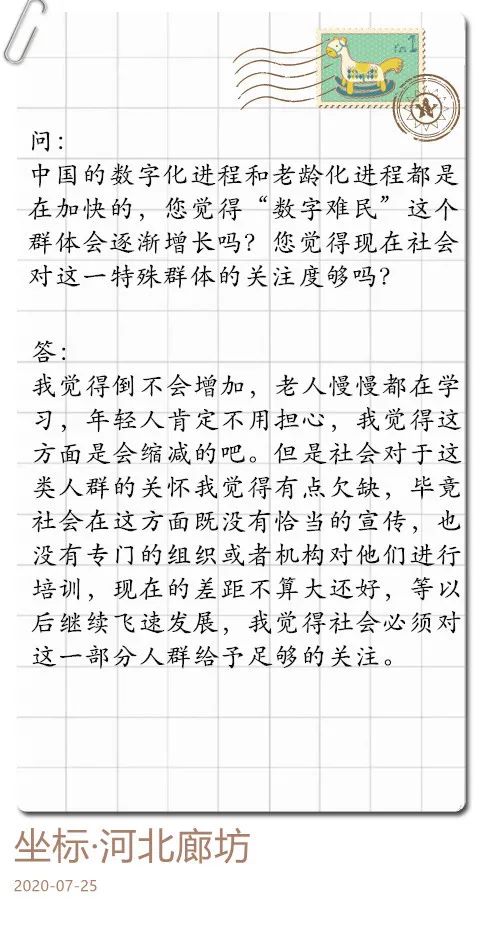 问：
中国的数字化进程和老龄化进程都是
在加快的，您觉得“数字难民”这个
群体会逐渐增长吗？您觉得现在社会
对这一特殊群体的关注度够吗？
答：
我觉得倒不会增加，老人慢慢都在学
习，年轻人肯定不用担心，我觉得这
方面是会缩减的吧。但是社会对于这
类人群的关怀我觉得有点欠缺，毕竟
社会在这方面既没有恰当的宣传，也
没有专门的组织或者机构对他们进行
培训，现在的差距不算大还好，等以
后继续飞速发展，我觉得社会必须对
这一部分人群给予足够的关注。
坐标·河北廊坊
2020-07-25